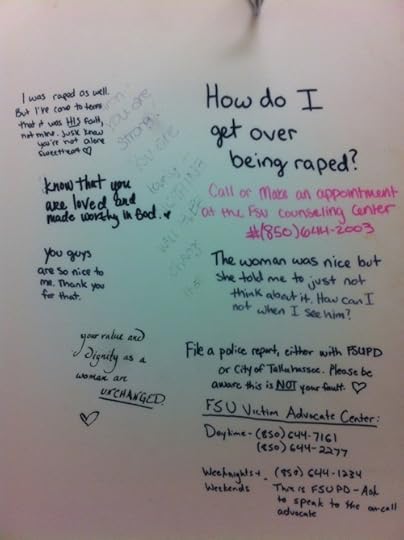 I was raped as well.
But I've come to terms
that it was HIS fault,
not mine. Just know
you're not alone
sweetheart ♡
you are
strong
you are
lovely
know that you
are loved and
made worthy in God. ♥
you guys
are so nice to
me. Thank you
for that.
your value and
dignity as a
woman are
UNCHANGED.
♡
How do I
get over
being raped?
Call or Make an appointment
at the FSU counseling Center
#(850)644-2003
The woman was nice but
she told me to just not
think about it. How can I
not when I see him?
File a police report, either with FSUPD
or City of Tallahassee. Please be
aware this is NOT your fault. ♡
FSU Victim Advocate Center:
Daytime - (850) 644-7161
(850) 644-2277
Weeknights + - (850) 644-1234
Weekends This is FSUPD - Ask
to speak to the on-call
advocate